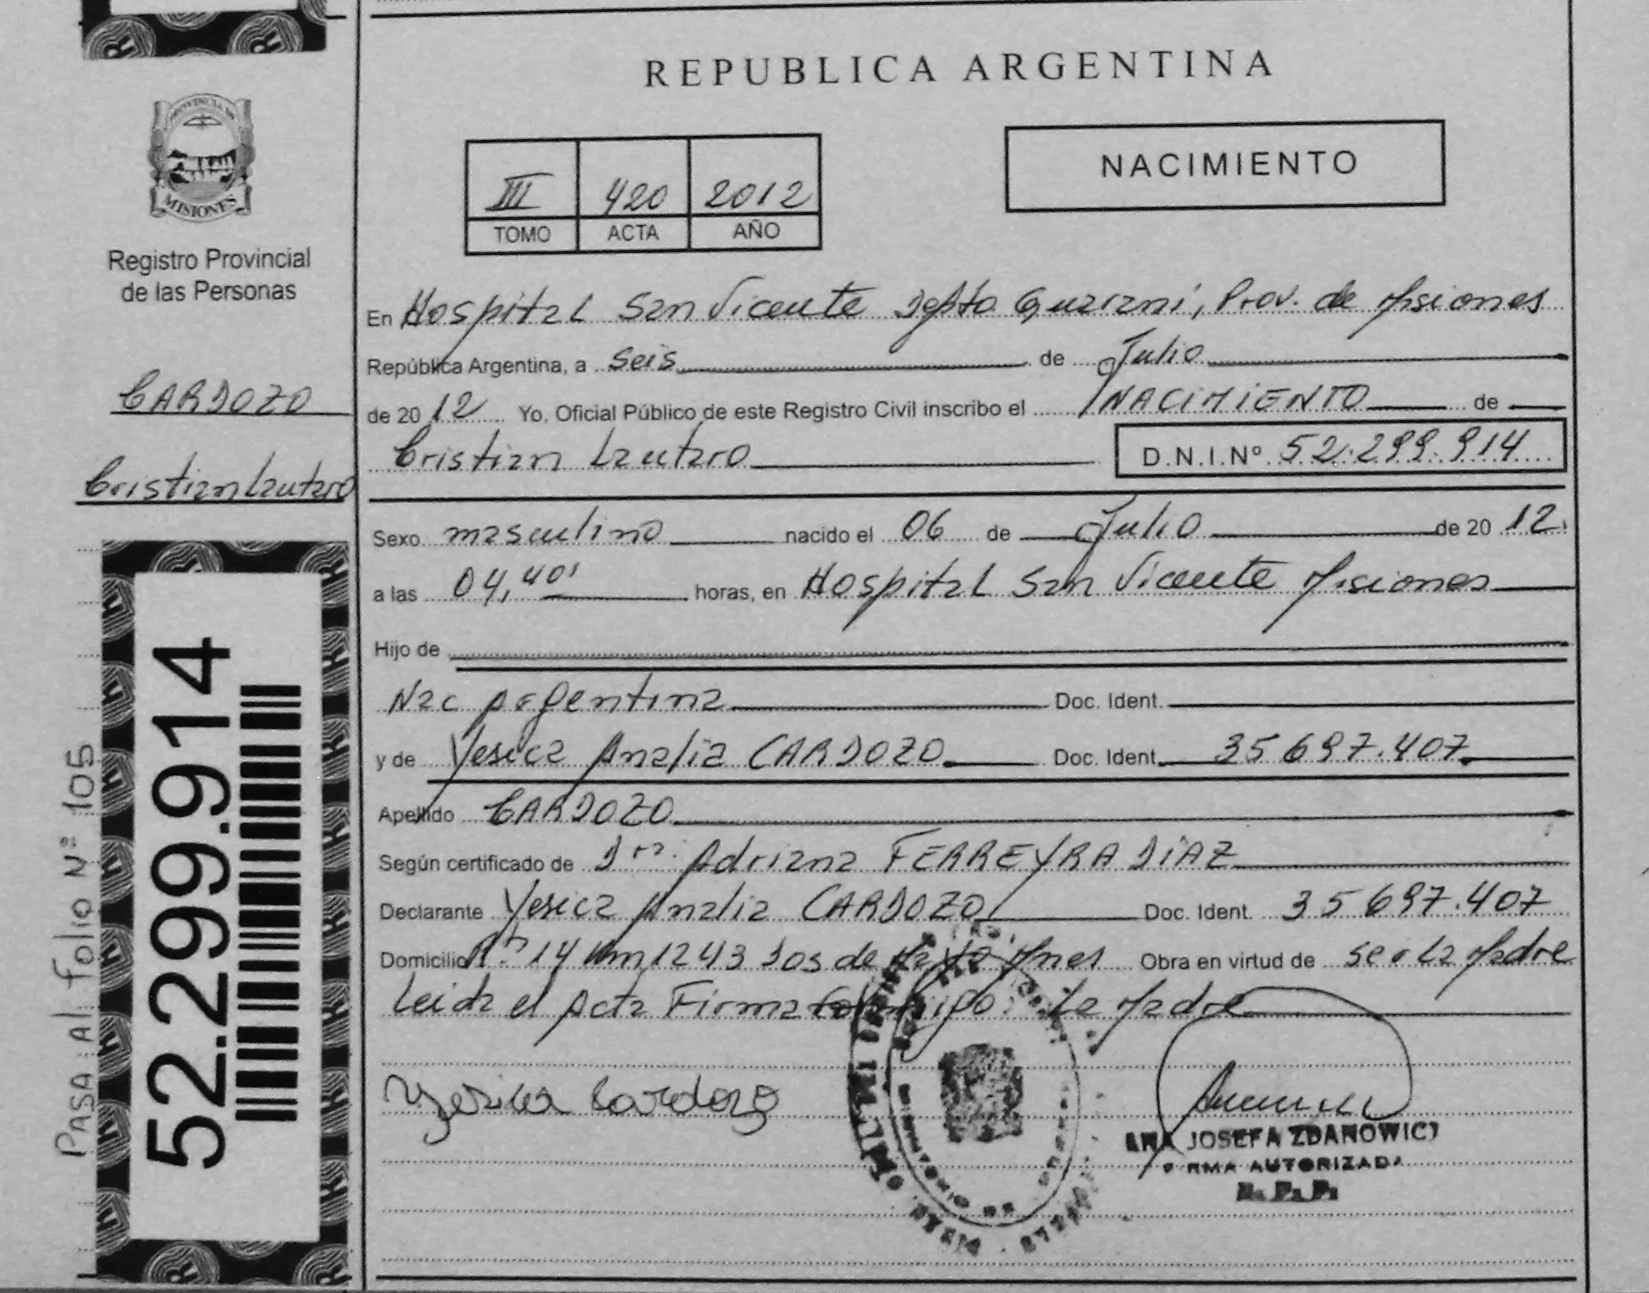 REPUBLICA ARGENTINA
PROVINCIA DE
MISIONES
Registro Provincial
de las Personas
CARDOZO
Cristian Lautaro
52.299.914
PASA AL FOLIO Nº 105
III 420 2012
TOMO ACTA AÑO
NACIMIENTO
En Hospital San Vicente Depto Guarani, Prov. de Misiones
República Argentina, a seis de Julio
de 2012 Yo, Oficial Público de este Registro Civil inscribo el NACIMIENTO de
Cristian Lautaro D.N.I.Nº 52.299.914
Sexo masculino nacido el 06 de Julio de 2012
a las 04,40 horas, en Hospital San Vicente Misiones
Hijo de
Nac Argentina Doc. Ident.
y de Yesica Analia CARDOZO Doc. Ident. 35697.407
Apellido CARDOZO
Según certificado de Dra. Adriana FERREYRA DIAZ
Declarante Yesica Analia CARDOZO Doc. Ident. 35697.407
Domicilio 14 Km 1243 Dos de Mayo Mnes Obra en virtud de ser La Madre
Leida el Acta Firma La Madre
Yesica Cardozo
ANA JOSEFA ZDANOWICZ
FIRMA AUTORIZADA
R. P. P.